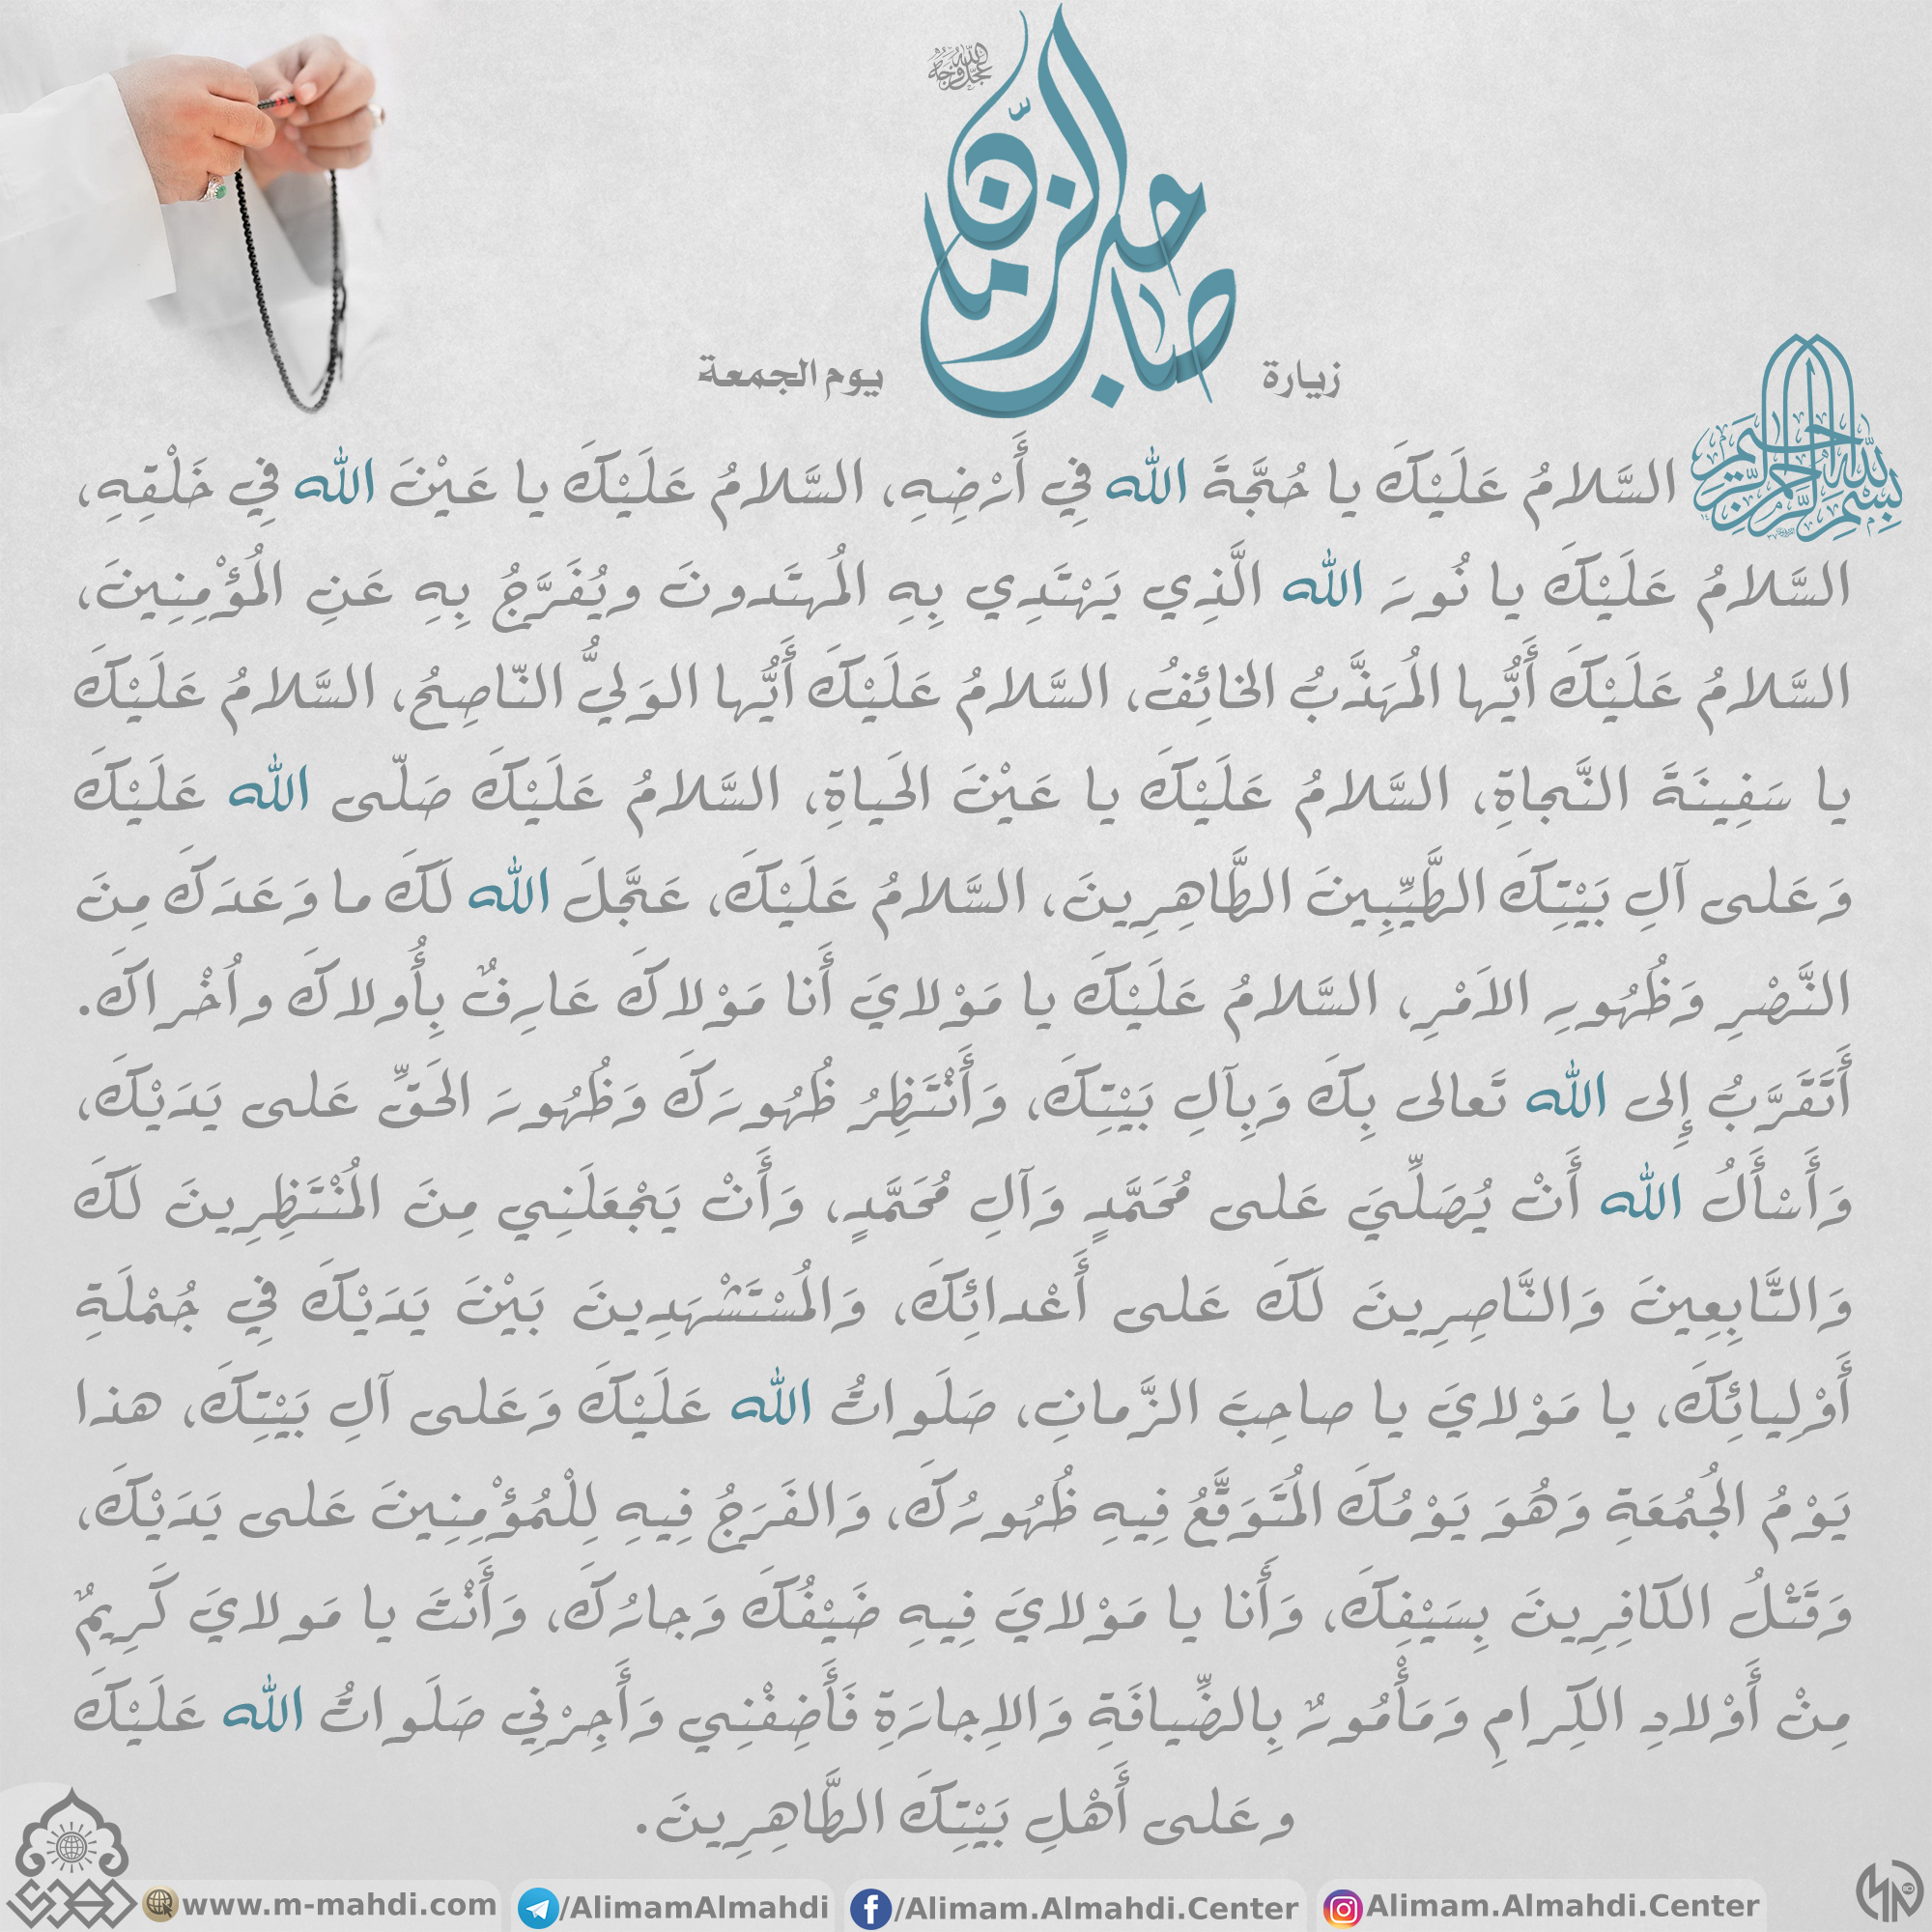 عجل الله فرجه
زيارة صاحب الزمان يوم الجمعة
بِسْمِ اللهِ الرَّحْمنِ الرَّحِيمِ
السَّلامُ عَلَيْكَ يا حُجَّةَ الله فِي أَرْضِهِ، السَّلامُ عَلَيْكَ يا عَيْنَ الله فِي خَلْقِهِ،
السَّلامُ عَلَيْكَ يا نُورَ الله الَّذِي يَهْتَدِي بِهِ المُهتَدونَ ويُفَرَّجُ بِهِ عَنِ المُؤْمِنِينَ،
السَّلامُ عَلَيْكَ أَيُّها المُهَذَّبُ الخائِفُ، السَّلامُ عَلَيْكَ أَيُّها الوَلِيُّ النّاصِحُ، السَّلامُ عَلَيْكَ
يا سَفِينَةَ النَّجاةِ، السَّلامُ عَلَيْكَ يا عَيْنَ الحَياةِ، السَّلامُ عَلَيْكَ صَلّى الله عَلَيْكَ
وَعَلى آلِ بَيْتِكَ الطَّيِّبِينَ الطَّاهِرِينَ، السَّلامُ عَلَيْكَ، عَجَّلَ الله لَكَ ما وَعَدَكَ مِنَ
النَّصْرِ وَظُهُورِ الاَمْرِ، السَّلامُ عَلَيْكَ يا مَوْلايَ أَنا مَوْلاكَ عَارِفٌ بِأُولاكَ واُخْراكَ.
أَتَقَرَّبُ إِلى الله تَعالى بِكَ وَبِآلِ بَيْتِكَ، وَأَنْتَظِرُ ظُهُورَكَ وَظُهُورَ الحَقِّ عَلى يَدَيْكَ،
وَأَسْأَلُ الله أَنْ يُصَلِّيَ عَلى مُحَمَّدٍ وَآلِ مُحَمَّدٍ، وَأَنْ يَجْعَلَنِي مِنَ المُنْتَظِرِينَ لَكَ
وَالتَّابِعِينَ وَالنَّاصِرِينَ لَكَ عَلى أَعْدائِكَ، وَالمُسْتَشْهَدِينَ بَيْنَ يَدَيْكَ فِي جُمْلَةِ
أَوْلِيائِكَ، يا مَوْلايَ يا صاحِبَ الزَّمانِ، صَلَواتُ الله عَلَيْكَ وَعَلى آلِ بَيْتِكَ، هذا
يَوْمُ الجُمُعَةِ وَهُوَ يَوْمُكَ المُتَوَقَّعُ فِيهِ ظُهُورُكَ، وَالفَرَجُ فِيهِ لِلْمُؤْمِنِينَ عَلى يَدَيْكَ،
وَقَتْلُ الكافِرِينَ بِسَيْفِكَ، وَأَنا يا مَوْلايَ فِيهِ ضَيْفُكَ وَجارُكَ، وَأَنْتَ يا مَولايَ كَرِيمٌ
مِنْ أَوْلادِ الكِرامِ وَمَأْمُورٌ بِالضِّيافَةِ وَالاِجارَةِ فَأَضِفْنِي وَأَجِرْنِي صَلَواتُ الله عَلَيْكَ
وعَلى أَهْلِ بَيْتِكَ الطَّاهِرِينَ.
www.m-mahdi.com /AlimamAlmahdi /Alimam.Almahdi.Center Alimam.Almahdi.Center